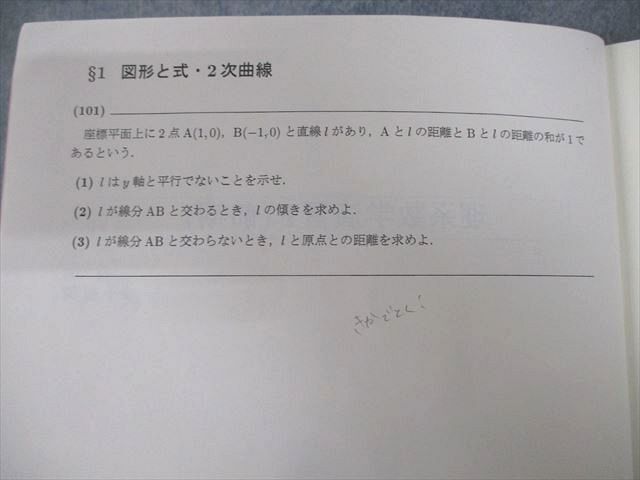 §1 図形と式・2次曲線
(101)
座標平面上に2点A(1,0)，B(−1,0)と直線lがあり，Aとlの距離とBとlの距離の和が1で
あるという．
(1) lはy軸と平行でないことを示せ．
(2) lが線分ABと交わるとき，lの傾きを求めよ．
(3) lが線分ABと交わらないとき，lと原点との距離を求めよ．